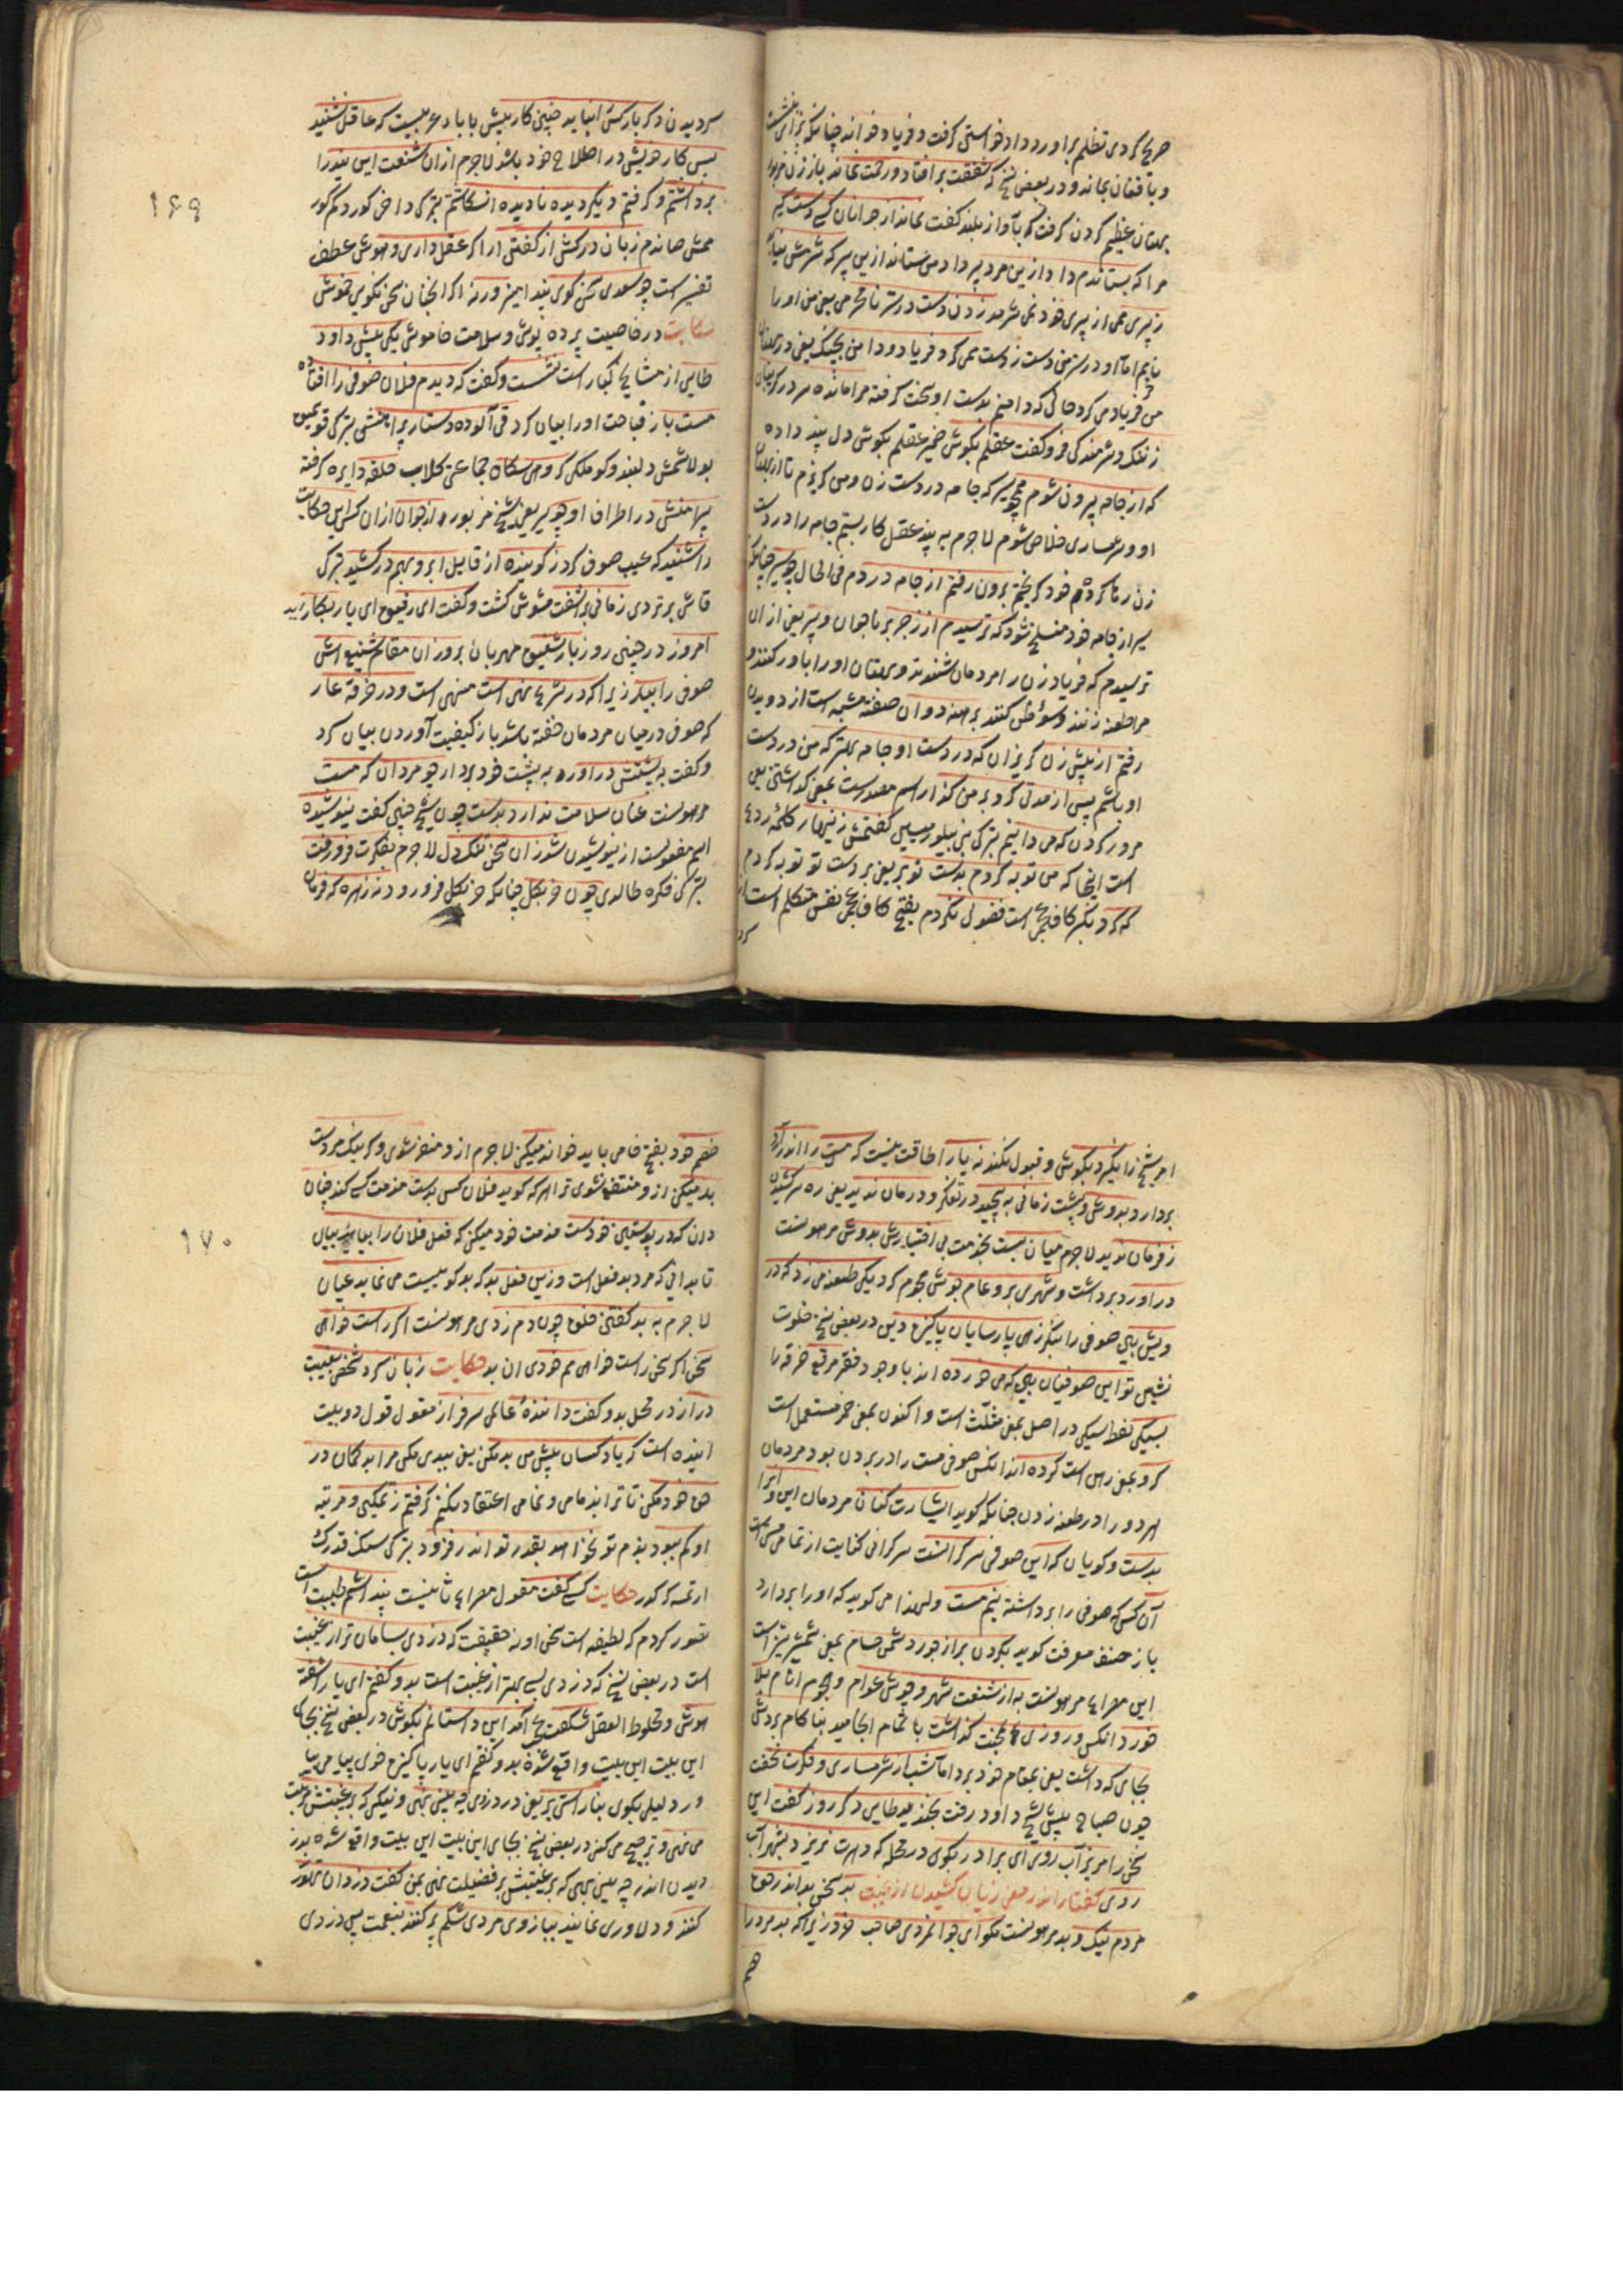 صریح کردی تظلم برآورد و دادخواستی گرفت و فریاد خواند چنانکه
و یا فغان نماند و در بعضی نسخ که شفقت برافتاد و رحمت نماند باز زن مزبور
بهتان عظیم کردن گرفت که بآواز بلند گفت نماند از جوانان کسی دستگیر
مرا که بستاندم داد ازین مرد پیر داد من ستاند ازین پیر که شرمش نیاید
ز پیری همی از پیری خود نمی شرمد زدن دست در ستر نامحرمی یعنی من او را
یا نیم اما او در ستر من دست زدست همی کرد فریاد و دامن بچنگ یعنی
می فریاد می کرد حالی که دامنم بدست او سخت گرفته مرا مانده سر در گریبان
ز ننگ و شرمندگی فرو گفت عقلم بگوش ضمیر عقلم بگوش دل پند داده
که از جامه بیرون شوم همچو سیر که جامه در دست زن و من گریزم تا از
او و شرمساری خلاص شوم لاجرم به پند عقل کار بستم جامه را در دست
زن رها کرده خود گریختم برون رفتم از جامه در دم فی الحال چو سیر چنانکه
سیر از جامه خود منسلخ شود که ترسیدم از زجر برنا جوان و پیر یعنی از ان
ترسیدم که فریاد زن را مردمان شنوند و بهتان او را باور کنند و
مرا طعنه زنند و سوء ظن کنند برهنه دوان صفت مشبهه است از دویدن
رفتم از پیش زن گریزان که در دست او جامه بهتر که من در دست
او باشم پس از مدتی کرد بر من گذار اسم مصدرست بمعنی گذاشتن یعنی
مرور کردن که می دانیم ترکی بنی بیلورمیسن گفتمش زنهار کلمه ردع
است اینجا که من توبه کردم بدست تو بر یعنی بر دست تو توبه کردم
که گرد بکبر کاف عجمی است فضولی نگردم بفتح کاف عجمی نفس متکلم است از
کر
گردیدن دکر بار کسی را نیاید چنین کار پیش یا بادعی نیست که عاقل نشیند
پس کار خویش در اصلاح خود باشد لاجرم ازان شنعت این پند را
برداشتم و گرفتم دیگر دیده نادیده انگاشتم ترکی داخی کوردکم کور
ممش صاندم زبان درکش از گفتنی ار اکر عقل داری و هوش عطف
تفسیرست چو سعدی سخن گوی پند آمیز ورنه اگر آنچنان سخن نگویی خموش
حکایت در خاصیت پرده پوشی و سلامت خاموشی یکی پیش داود
طایی از مشایخ کبار است نشست و گفت که دیدم فلان صوفی را افتاده
مست باز قباحت او را بیان کرد قی آلوده دستار و پیراهنش ترکی قویمق
بولاشمش دلبند و کوملکی گروهی سگان جماعتی کلاب حلقه دایره گرفته
پیرامنش در اطراف او چو پیر یعنی شیخ مزبور از جوان ازان کسی این حکایت
را شنید که عیب صوفی کرد ز گوینده از قایل ابرو بهم در کشید ترکی
قاشی برتردی زمانی برآشفت مشوش گشت و گفت ای رفیق ای یار بکار آید
امروز در چنین روز یار شفیق مهربان برو زان مقام شنیع اش
صوفی را بیار زیرا که در شرع نهی است منهی است و در خرقه عار
که صوفی در میان مردمان خفته باشد باز کیفیت آوردن بیان کرد
و گفت به پشتش در آور به پشت خود بردار چو مردان که مست
مرهونست عنان سلامت ندارد بدست چون شیخ چنین گفت نیوشیده
اسم مفعولست از نیوشیدن شد زان سخن تنگدل لاجرم بفکرت فرو رفت
ترکی فکره طالدی چون خر بگل چنانکه خر بگل فرو رود نه زهره که فرمان
۱۶۹
امر شیخ را نگیرد بگوش و قبول نکند نه یارا طاقت نیست که مست را اندر آرد
بردارد بدوش و پشت زمانی به پیچید در تفکر و درمان ندید یعنی ره سرکشیدن
ز فرمان ندید لاجرم میان ببست بخدمت بی اختیارش بدوش مرهونست
در آورد برداشت و شهری برو عام جوش هجوم کرد یکی طعنه می زد که در
ویش بین صوفی را بنگر زهی پارسایان پاکیزه دین در بعضی نسخ خلوت
نشین تو این صوفیان بین که می خورده اند با وجود فقر مرقع خرقه را
بسیکی لفظ سیکی در اصل بمعنی مثلث است و اکنون بمعنی خمر مستعمل است
گرو بمعنی رهن است کرده اند آنکس صوفی مست را در بردن بود مردمان
هر دو را در طعنه زدن چنانکه گوید اشارت کنان مردمان این و آنرا
بدست و گویان که این صوفی سرگرانست سرگرانی کنایت از تمامی مستی است
آن کس که صوفی را برداشته نیم مست ولهذا می گوید که او را بردارد
باز مصنف معرفت گوید بگردن بر از جور دشمن حسام بمعنی شمشیر تیز است
این مصراع مرهونست به از شنعت شهر و جوش عوام و هجوم انام بلا
خورد آنکس و روزی بمحنت گذاشت با تمام انجامید بناکام بردش
بجایی که داشت یعنی بمقام خود برد اما شب از شرمساری و فکرت نخفت
چون صباح پیش شیخ داود رفت بخندید طایی دگر روز گفت این
سخن را مریز آب روی ای برادر بکوی در محله که دهرت نریزد بشهر آب
روی گفتار اندر معنی زیان کشیدن از غیبت بد سخن بد اندر حق
مردم نیک و بد مرهونست مگو ای جوانمردی صاحب خود زیرا که بد مرد را
هم
خصم خود بفتح خا می باید خواند میکنی لاجرم ازو متضرر شوی وگر نیک مردست
بد میکنی ازو منتفع نشوی ترا هر که گوید فلان کس بدست مذمت کسی کند چنان
دان که در پوستین خودست مذمت خود میکنی که فعل فلان را بباید بیان
تا بدانی که مرد بد فعل است وزین فعل بد که بدگوییست می نماید عیان
لاجرم به بد گفتن خلق چون دم زدی مرهونست اگر راست خواهی
سخن اگر سخن راست خواهی هم خودی ان بد حکایت زبان کرد شخصی بغیبت
دراز در محل بدو گفت داننده عالمی سرفراز مقول قول دو بیت
آینده است که یاد کسان پیش من بد مکن یعنی ببدی مکن مرا بدگمان در
حق خود مکن تا ترا بدنامی و نمامی اعتقاد نکنم گرفتم ز تمکین و مرتبه
او کم ببود بدم تو نخواهد بقدر تو اندر فزود ترکی سنک قدرک
ارتمسه کرکدر حکایت کسی گفت مقول مصراع ثانیست پنداشتم طیبت است
تصور کردم که لطیفه است سخن او نه حقیقت که دزدی بسامان تر از غیبت
است در بعضی نسخ که دزدی بسی بهتر از غیبت است بدو گفتم ای یار آشفته
هوش و مخلوط العقل شگفت عجب آمد این داستانم بگوش در بعضی نسخ بجای
این بیت این بیت واقع شده بدو گفتم ای یار پاکیزه خوی بیا می بیا
ور دلیلی بگوی بناراستی بر یعنی در دزدی چه بینی بهی و نیکی که بر غیبتش مرتبت
می نهی و ترجیح می کنی در بعضی نسخ بجای این بیت این بیت واقع شده بدز
دیدن اندر چه بینی بهی که بر غیبتش بر فضیلت نهی بمن گفت دزدان تهور
کنند و دلاوری نمایند ببازوی مردی شکم پر کنند بنعمت پس دزدی
۱۷۰